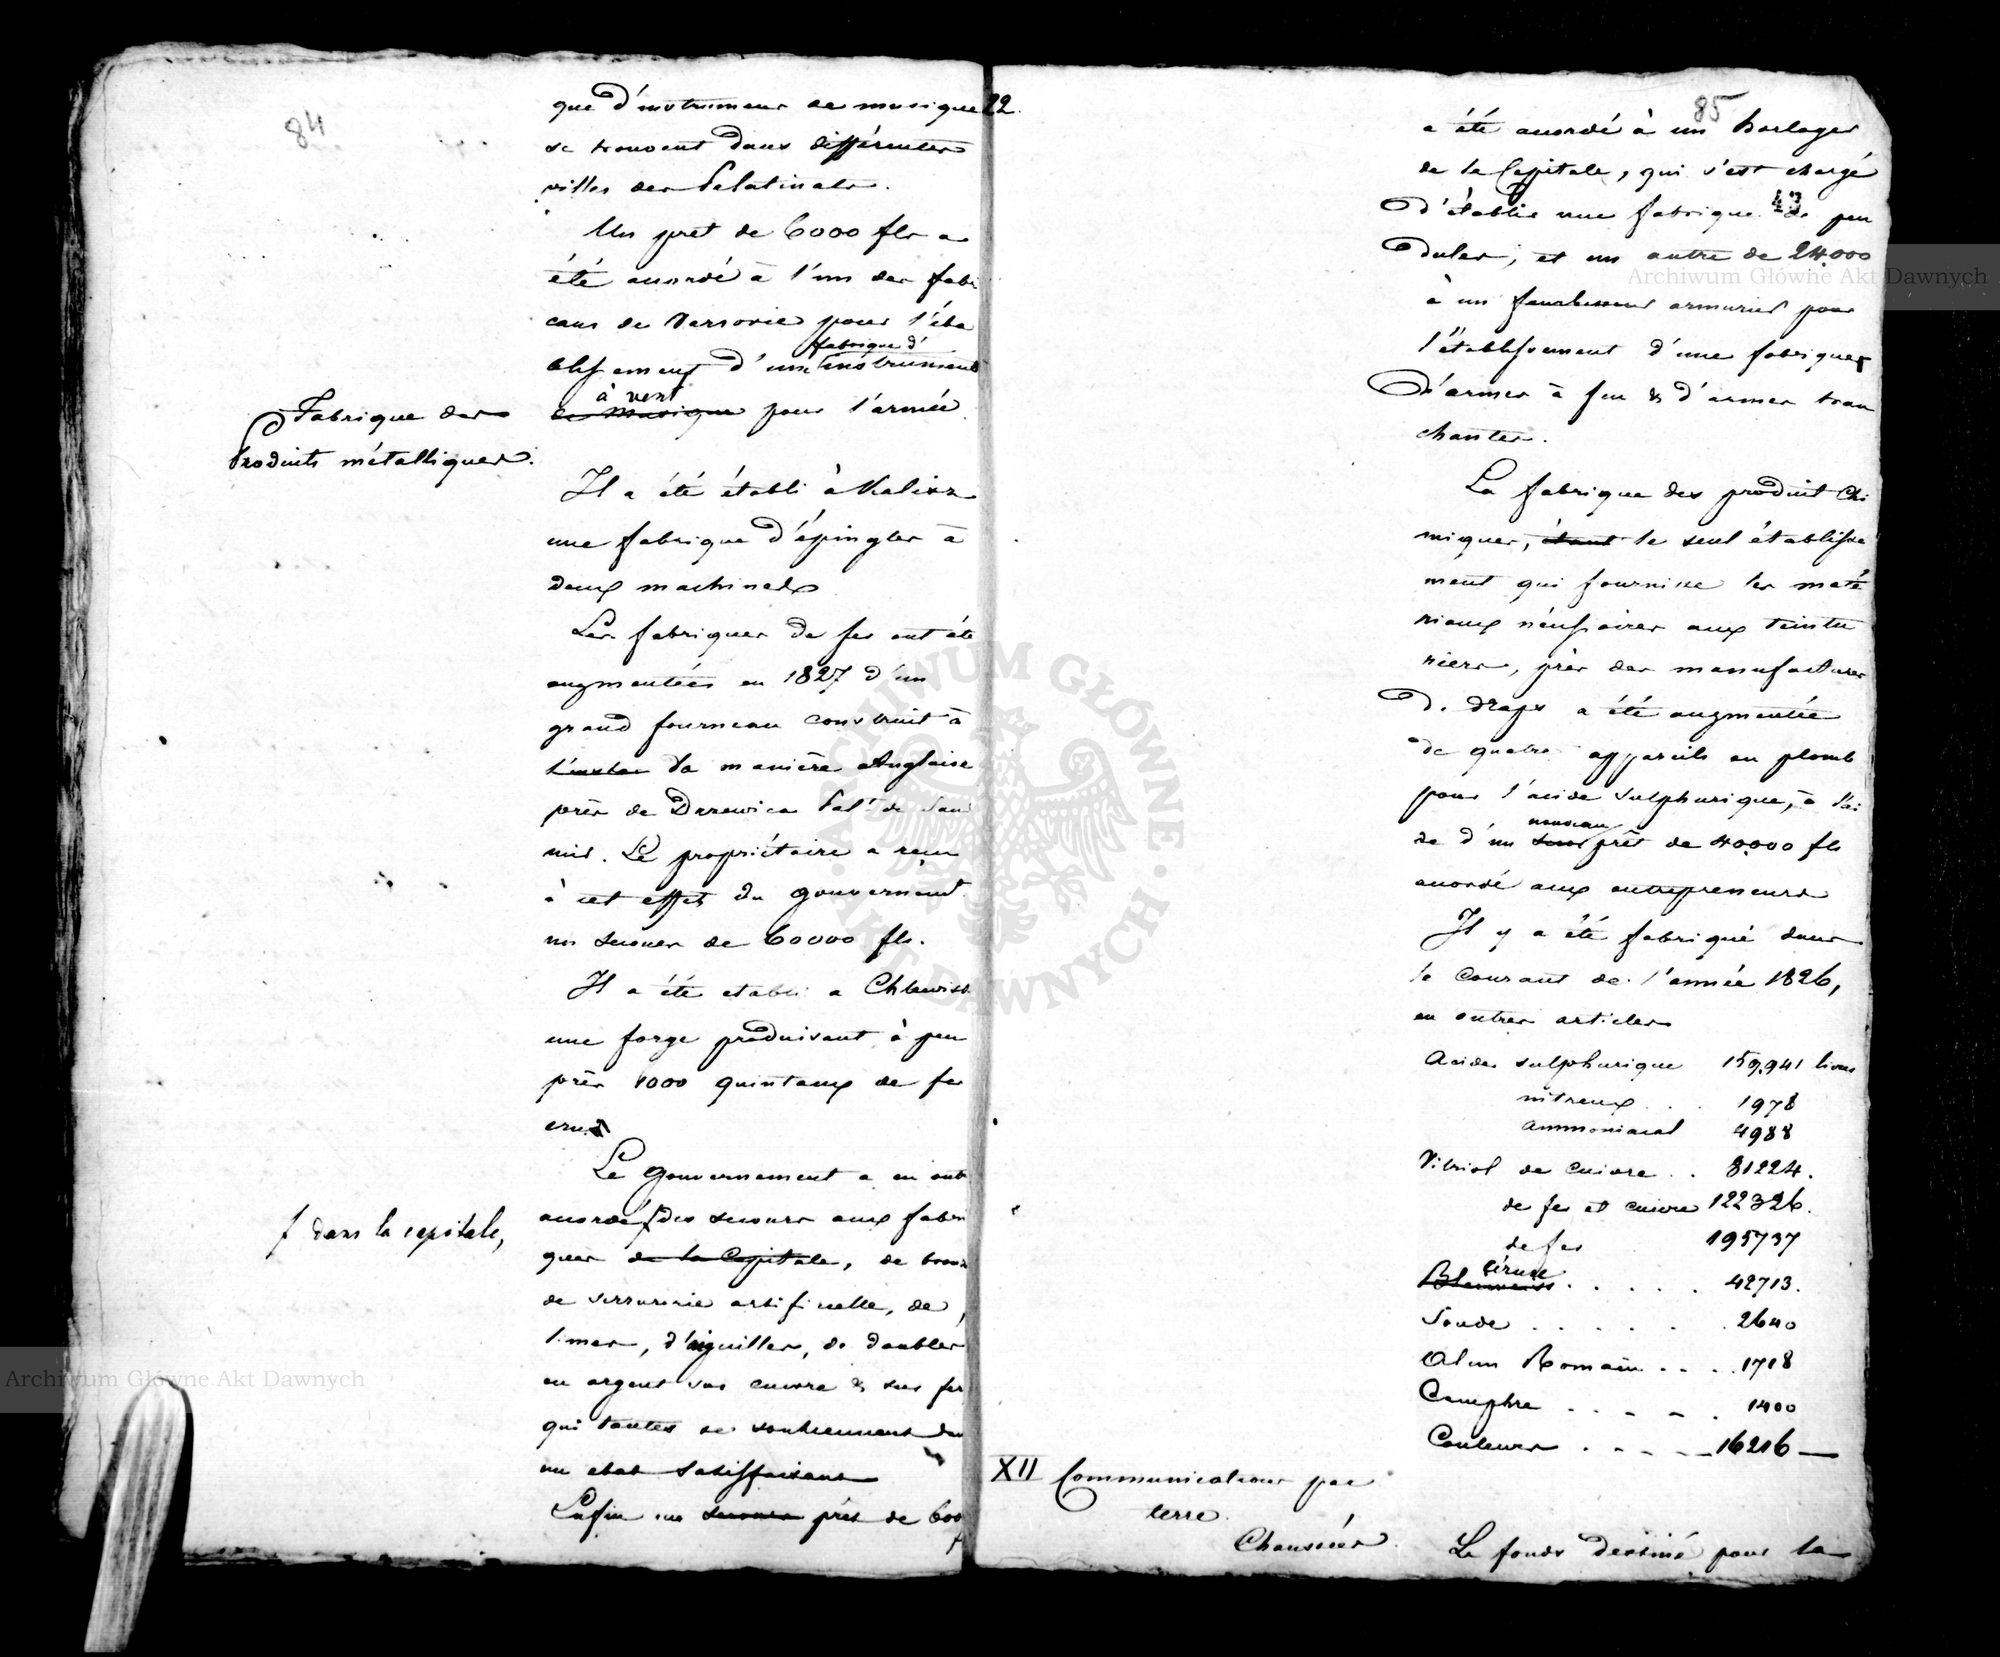 84
que d'instrumens de musique
se trouvent dans différentes
villes des Palatinats.
Un prêt de 6000 fls a
été accordé à l'un des fabri
cans de Varsovie pour l'éta
blissement d'une fabrique d'instrumens
à vent
de musique pour l'armée.
Fabrique des
Produits métalliques.
Il a été établi à Kalisz
une fabrique d'épingles à
deux machines
Les fabriques de fer ont été
augmentées en 1827 d'un
grand fourneau construit à
l'instar la manière Anglaise
près de Drzewica Palt de San
mir. Le propriétaire a reçu
à cet effet du gouvernemt
un secours de 60000 fls.
Il a été etabli a Chlewisk
une forge produisant à peu
près 1000 quintaux de fer
crud
Le Gouvernement a en outr
accordé des secours aux fabri
f dans la capitale,
ques de la Capitale, de bronz
de serrurerie artificielle, de
limes, d'aiguilles, de doubler
en argent sur cuivre & sur fer
qui toutes se soutiennent dan
un etat satisfaisant
Enfin un secours prêt de 600
22.
85
a été accordé à un horloger
de la Capitale, qui s'est chargé
43
d'établir une fabrique de pen
dules, et un autre de 24000
à un fourbisseur armurier pour
l'établissement d'une fabrique
d'armes à feu & d'armes tran
chantes.
La fabrique des produit Chi
miques, étant le seul établisse
ment qui fournisse les maté
riaux nécessaires aux teintu
riers, près des manufactures
de draps a été augmentée
de quatre appareils en plomb
pour l'acide sulphurique, à l'ai
de d'un nouveau prêt de 40000 fls
accordé aux entrepreneurs
Il y a été fabriqué dans
le courant de l'année 1826,
en outres articles
Acides sulphurique 159,941 livres
nitreux . . . 1978
ammoniacal 4988
Vitriol de cuivre . . 81224.
de fer et cuivre 122326.
de fer 195737
céruse
Bleuweiss . . . . . 42713.
Soude . . . . . . 2640
Alun Romain . . . . 1718
Camphre . . . . . 1400
Couleurs . . . . 16216 —
XII Communications par
terre.
Chaussées.
Le fonds destiné pour la
Archiwum Główne Akt Dawnych
Archiwum Główne Akt Dawnych
ARCHIWUM GŁÓWNE
AKT DAWNYCH